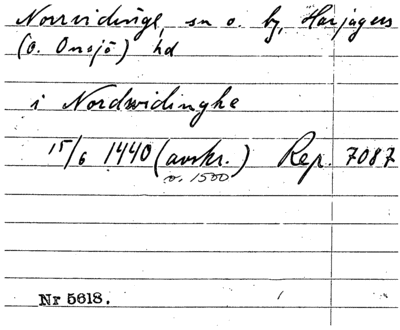 Norrvidinge, sn o. by, Harjagers
(o. Onsjö) hd
i Nordwidinghe
15/6 1440 (avskr.) Rep. 7087
o. 1500
Nr 5618.